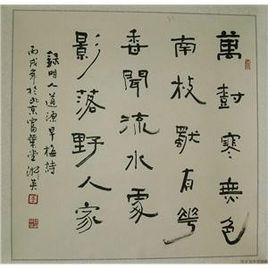 萬樹寒無色
南枝獨有華
香聞流水處
影落野人家
錄明人道源早梅詩
丙戌年於北京富堂